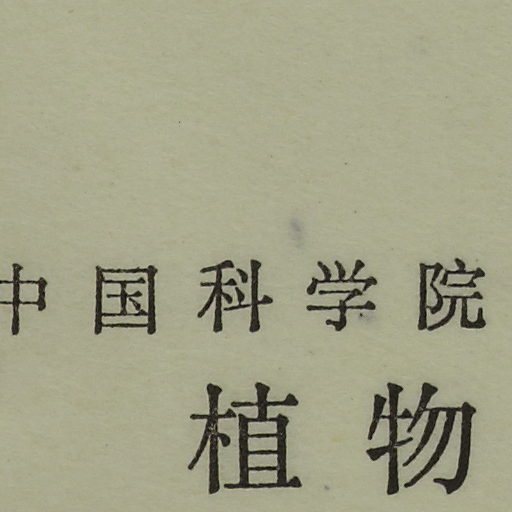 中国科学院
植物